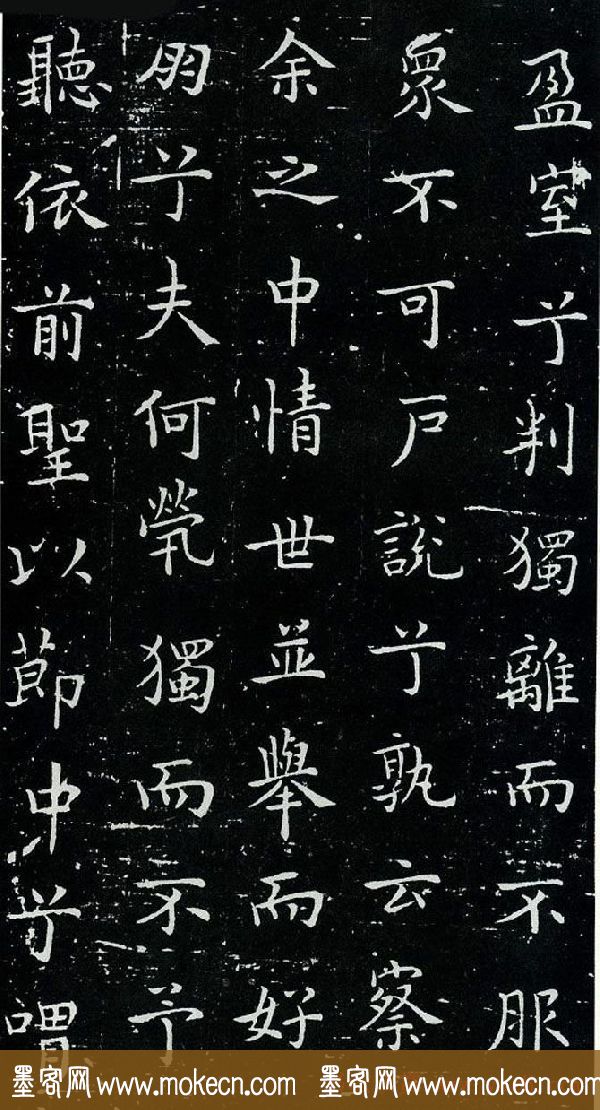 盈室兮判獨離而不服
衆不可戶說兮孰云察
余之中情世並舉而好
朋兮夫何煢獨而不予
聽依前聖以節中兮喟
墨客网 www.mokecn.com 墨客网 www.mokecn.com